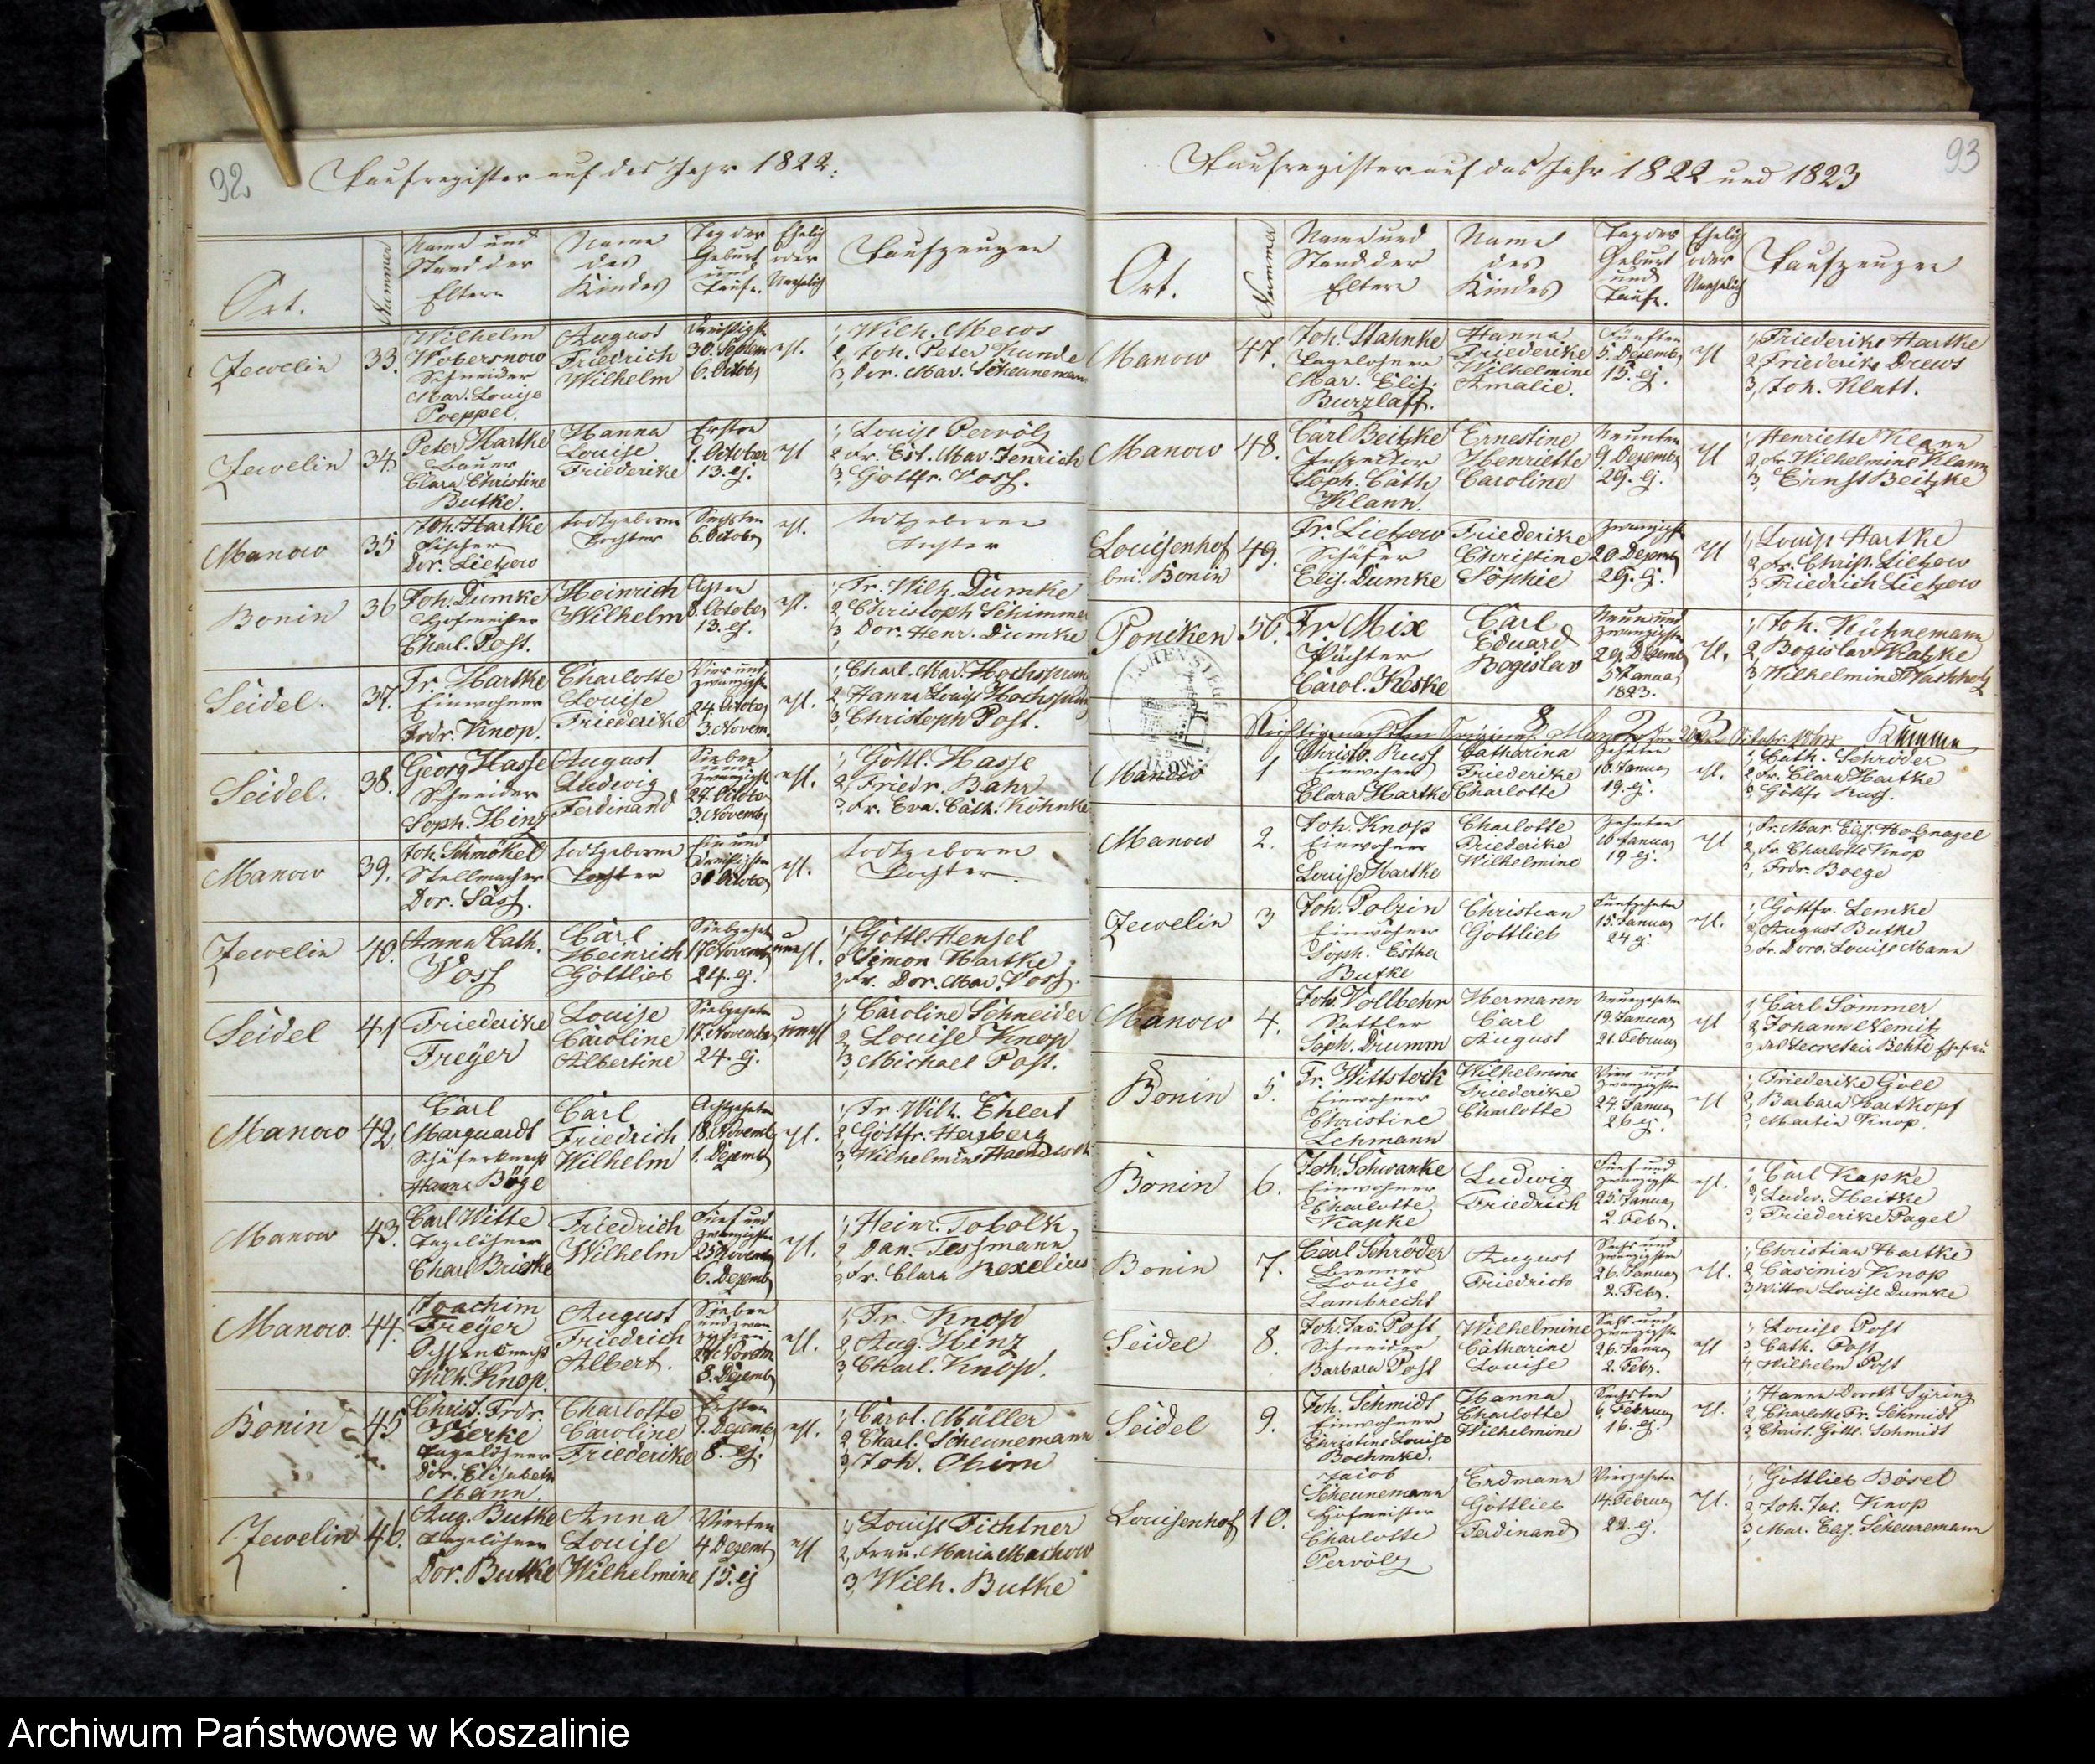 92
Taufregister auf das Jahr 1822.
Ort.
Nummer
Name und
Stand der
Eltern
Name
des
Kindes
Tag der
Geburt
und
Taufe.
Ehelich
oder
Unehelich
Taufzeugen
Jewelin
33.
Wilhelm
Wobersnow
Schneider
Mar. Louise
Poeppel.
August
Friedrich
Wilhelm
Dreißigste
30. Septem
6. Octob
ehl.
1, Wilh. Mews
2, Joh. Peter Kunde
3, Dor. Mar. Scheunemann
Jewelin
34.
Peter Hartke
Bauer
Clara Christine
Butke.
Hanna
Louise
Friederike
Ersten
1. October
13. ej.
ehl
1, Louise Pervölz
2 Fr. Est. Mar. Jenrich
3, Gottfr. Voss.
Manow
35
Joh. Hartke
Fischer
Dor. Lietzow
todtgeborne
Tochter
Sechsten
6. Octob
ehl.
todtgeborne
Tochter
Bonin
36
Joh. Dumke
Hofmeister
Charl. Post.
Heinrich
Wilhelm
Achten
8. Octob
13. ej.
ehl.
1, Fr. Wilh. Dumke
2 Christoph Schimme
3, Dor. Henr. Dumke
Seidel.
37.
Fr. Hartke
Einwohner
Frdr. Knop.
Charlotte
Louise
Friederike
Vier und
zwanzigste
24. Octob
3. Novem.
ehl.
1, Charl. Mar. Hochsprung
2, Hanna Louise Hochsprung
3, Christoph Post.
Seidel.
38.
Georg Hasse
Schneider
Soph. Hinz
August
Ludwig
Ferdinand
Sieben
und
zwanzigste
27. Octob
3. Novemb
ehl.
1, Gottl. Hasse
2, Friedr. Bahr
3, Fr. Eva. Cath. Köhnke
Manow
39.
Joh. Schmökel
Stellmacher
Dor. Sass.
todtgeborne
Tochter
Ein und
dreißigste
Octob
ehl.
todtgeborne
Tochter.
Jewelin
40.
Anna Cath.
Voss
Carl
Heinrich
Gottlieb
Siebzehnte
17. Novemb
24. ej.
unehl.
1, Gottl. Hensel
2 Simon Hartke
3, Fr. Dor. Mar. Voss.
Seidel
41
Friederike
Freyer
Louise
Caroline
Albertine
Siebzehnte
17. Novemb
24. ej.
unehl
1, Caroline Schneider
2, Louise Knop
3, Michael Post.
Manow
42.
Carl
Marquardt
Schäferknecht
Hanna Böge
Carl
Friedrich
Wilhelm
Achtzehnte
18. Novemb
1. Dezemb
ehl.
1, Fr. Wilh. Ehlert
2, Gottfr. Herzberg
3, Wilhelmine
Manow
43.
Carl Witte
Tagelöhner
Charl Brietke
Friedrich
Wilhelm
Fünf und
zwanzigste
25 Novemb
6. Dezemb
ehl.
1, Heinr. Tobolk
2, Dan. Tessmann
3, Fr. Clara Rexelius
Manow.
44.
Joachim
Freyer
Ochsenknecht
Wilh. Knop.
August
Friedrich
Albert.
Sieben
und zwan-
zigsten
27. Novem
8. Dezemb
ehl.
1, Fr. Knop
2, Aug. Hinz
3, Charl. Knop.
Bonin
45
Christ. Frdr.
Kerke
Tagelöhner
Dor. Elisabeth
Mann
Charlotte
Caroline
Friederike
Ersten
1. Dezemb
8. ej.
ehl.
1, Carol. Müller
2, Charl. Scheunemann
3, Joh.
Jewelin
46.
Aug. Butke
Tagelöhner
Dor. Butke
Anna
Louise
Wilhelmine
Vierten
4 Dezemb
15. ej
ehl
1, Louise Fichtner
2, Frau. Maria Machow
3, Wilh. Butke
93
Taufregister auf das Jahr 1822 und 1823
Ort.
Nummer
Name und
Stand der
Eltern
Name
des
Kindes
Tag der
Geburt
und
Taufe.
Ehelich
oder
Unehelich
Taufzeugen
Manow
47.
Joh. Stahnke
Tagelöhner
Mar. Elis.
Burzlaff.
Hanna
Friederike
Wilhelmine
Amalie.
Fünften
5. Dezemb
15. ej.
ehl
1, Friederike Hartke
2, Friederike Drews
3, Joh. Klatt.
Manow
48.
Carl Beitzke
Inspector
Soph. Cath
Klann.
Ernestine
Henriette
Caroline
Neunten
9. Dezemb
29. ej.
ehl
1, Henriette Klann
2, Fr. Wilhelmine Klann
3, Ernst Beitzke
Louisenhof
bei Bonin
49.
Fr. Lietzow
Schäfer
Elis. Dumke
Friederike
Christine
Sophie
Zwanzigste
20 Dezemb
29. ej.
ehl
1, Louise Hartke
2, Fr. Christ. Lietzow
3, Friedrich Lietzow
Poniken
50.
Fr. Mix
Pächter
Carol. Keske
Carl
Eduard
Bogislav
Neun und
zwanzigste
29. Dezemb
5 Januar
1823.
ehl.
1, Joh. Kühnemann
2, Bogislav Klatzke
3, Wilhelmine Wachholz
Manow
1
Christ. Russ
Einwohner
Clara Hartke
Catharina
Friederike
Charlotte
Zehnten
10. Januar
19. ej.
ehl.
1, Cath. Schröder
2, Fr. Clara Hartke
3, Gottfr Russ.
Manow
2.
Joh. Knop
Einwohner
Louise Hartke
Charlotte
Friederike
Wilhelmine
Zehnten
10 Januar
19 ej.
ehl
1, Fr. Mar. Elis. Holznagel
2, Fr. Charlotte Knop
3, Frdr. Boege
Jewelin
3
Joh. Polzin
Einwohner
Soph. Esther
Butke
Christian
Gottlieb
Fünfzehnten
15. Januar
24 ej.
ehl.
1, Gottfr. Lemke
2, August Butke
3, Fr. Doro. Louise Mann
Manow
4.
Joh. Vollbehr
Sattler
Soph. Drumm
Hermann
Carl
August
Neunzehnten
19. Januar
21. Februar
ehl
1, Carl Sommer
2, Johann Nemitz
Bonin
5.
Fr. Wittstock
Einwohner
Christine
Lehmann
Wilhelmine
Friederike
Charlotte
Vier und
zwanzigste
24. Januar
26 ej.
ehl
1, Friederike Göll
2, Barbara Hartkopf
3, Martin Knop.
Bonin
6.
Joh. Schwanke
Einwohner
Charlotte
Kapke
Ludwig
Friedrich
Fünf und
zwanzigste
25. Januar
2. Febr.
ehl.
1, Carl Kapke
2, Ludw. Heitke
3, Friederike Pagel
Bonin
7.
Carl Schröder
Brenner
Louise
Lambrecht
August
Friedrich
Sechs und
zwanzigsten
26. Januar
2. Febr.
ehl.
1, Christian Hartke
2, Casimir Knop
3 Louise Dumke
Seidel
8.
Joh. Jac. Post
Schneider
Barbara Post
Wilhelmine
Catharine
Louise
Sechs und
zwanzigste
26. Januar
2. Febr.
ehl
1, Louise Post
3, Cath. Post
4, Wilhelm Post
Seidel
9.
Joh. Schmidt
Einwohner
Christine Louise
Boehmke.
Hanna
Charlotte
Wilhelmine
Sechsten
6. Februar
16. ej.
ehl.
1, Hanna Doroth Syring
2, Charlotte Fr. Schmidt
3, Christ. Gottl. Schmidt
Louisenhof
10.
Jacob
Scheunemann
Hofmeister
Charlotte
Pervölz
Erdmann
Gottlieb
Ferdinand
Vierzehnten
14. Februar
22. ej.
ehl.
1, Gottlieb Bösel
2, Joh. Jac. Knop
3, Mar. Scheunemann
Archiwum Państwowe w Koszalinie